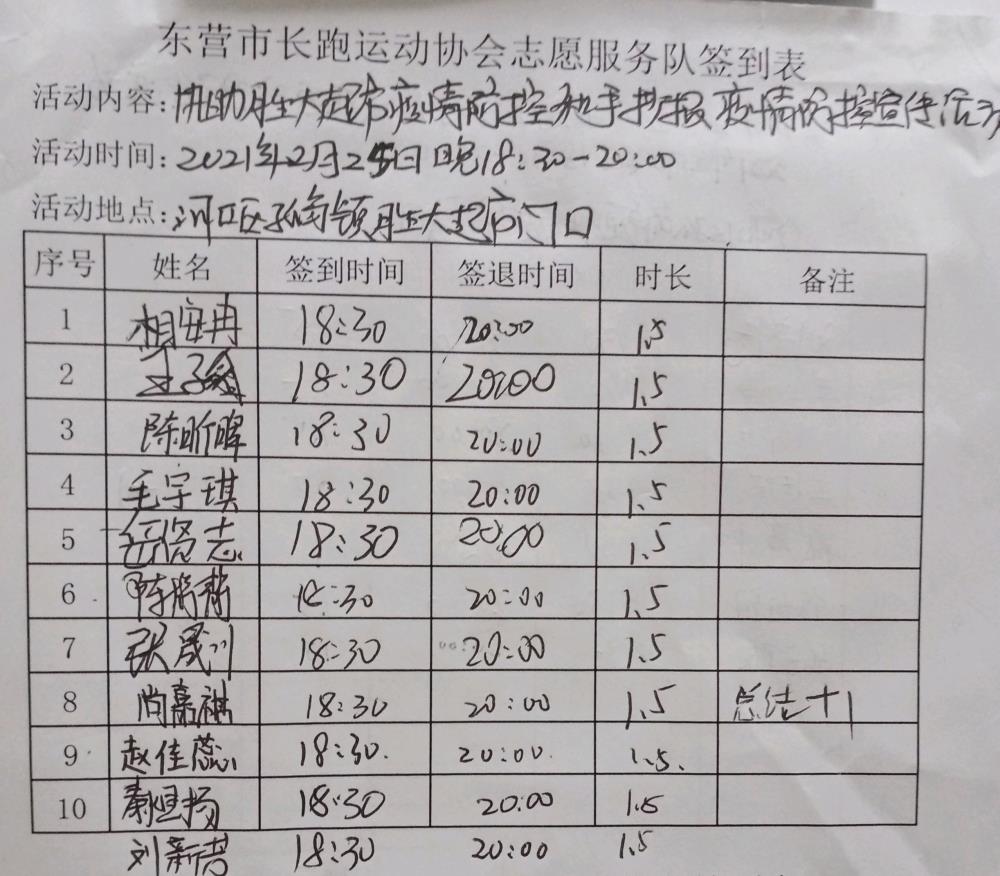 东营市长跑运动协会志愿服务队签到表
活动内容:协助胜大超市疫情防控和手抄报疫情防控宣传活动
活动时间:2021年2月25日晚18:30-20:00
活动地点:河口区孤岛镇胜大超市门口
序号 姓名 签到时间 签退时间 时长 备注
1 相安冉 18:30 20:00 1.5
2 18:30 20:00 1.5
3 陈昕晖 18:30 20:00 1.5
4 毛宇琪 18:30 20:00 1.5
5 岳贤志 18:30 20:00 1.5
6 18:30 20:00 1.5
7 张晟川 18:30 20:00 1.5
8 尚嘉祺 18:30 20:00 1.5 总结+1
9 赵佳蕊 18:30. 20:00. 1.5.
10 18:30 20:00 1.5
刘新 18:30 20:00 1.5